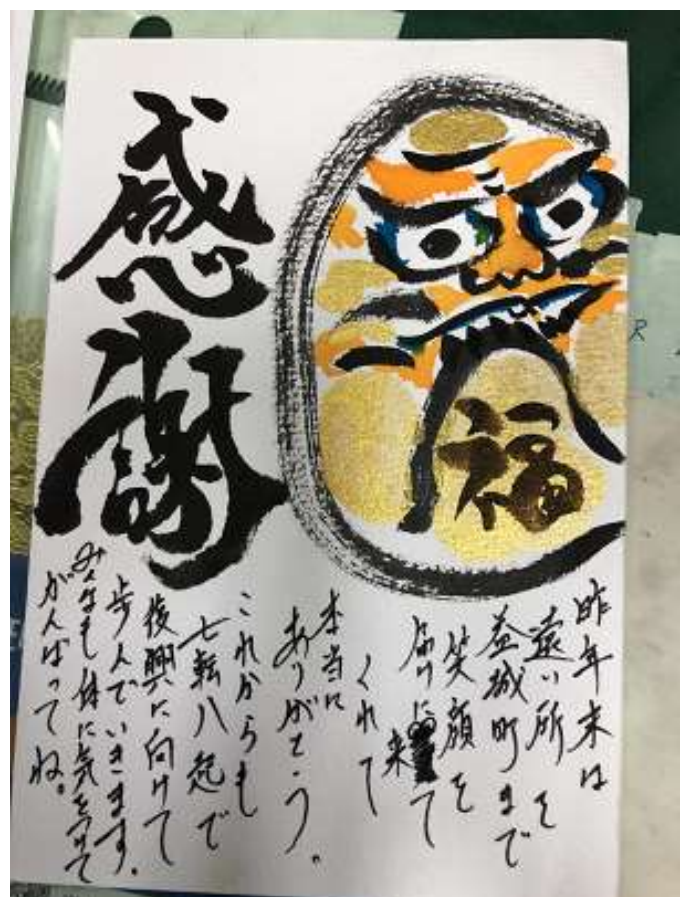 感謝
福
昨年末は
遠い所を
益城町まで
笑顔を
届けに来て
くれて
本当に
ありがとう。
これからも
七転八起で
復興に向けて
歩んでいきます。
みんなも体に気をつけて
がんばってね。
R